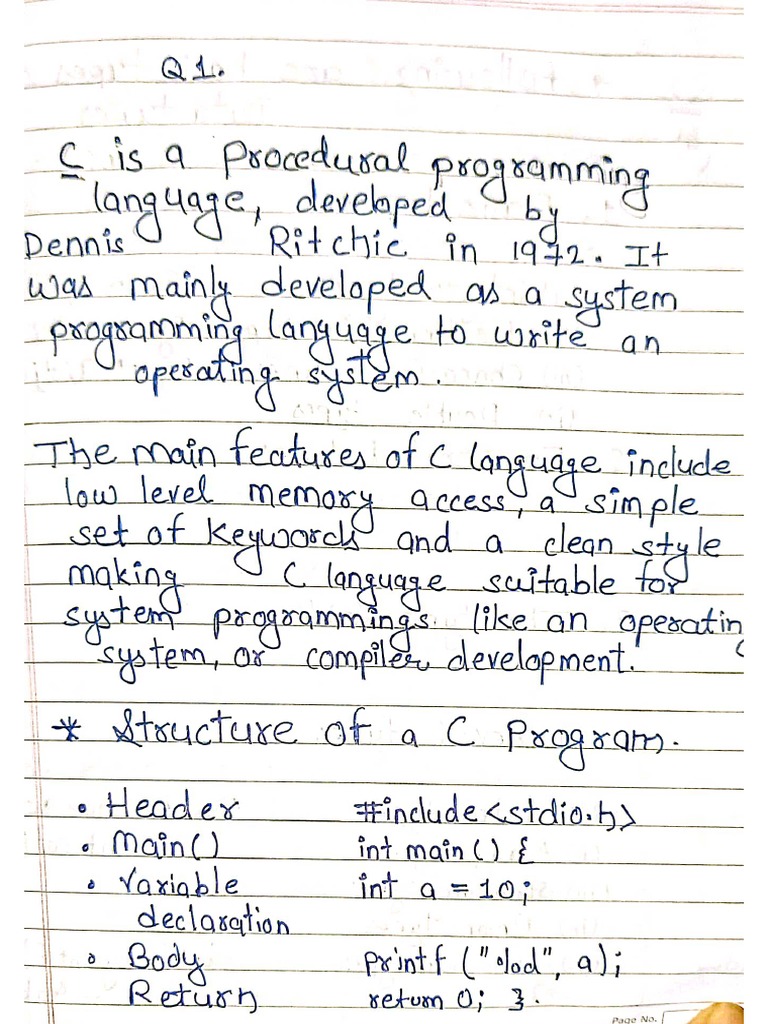 Q1.
C is a Procedural programming
language, developed by
Dennis Ritchie in 1972. It
was mainly developed as a system
programming language to write an
operating system.
The main features of C language include
low level memory access, a simple
set of keywords and a clean style
making C language suitable for
system programmings like an operating
system, or compiler development.
* Structure of a C Program.
• Header #include <stdio.h>
• Main() int main () {
• Variable int a = 10;
declaration
• Body printf ("%d", a);
Return return 0; }.
Page No.